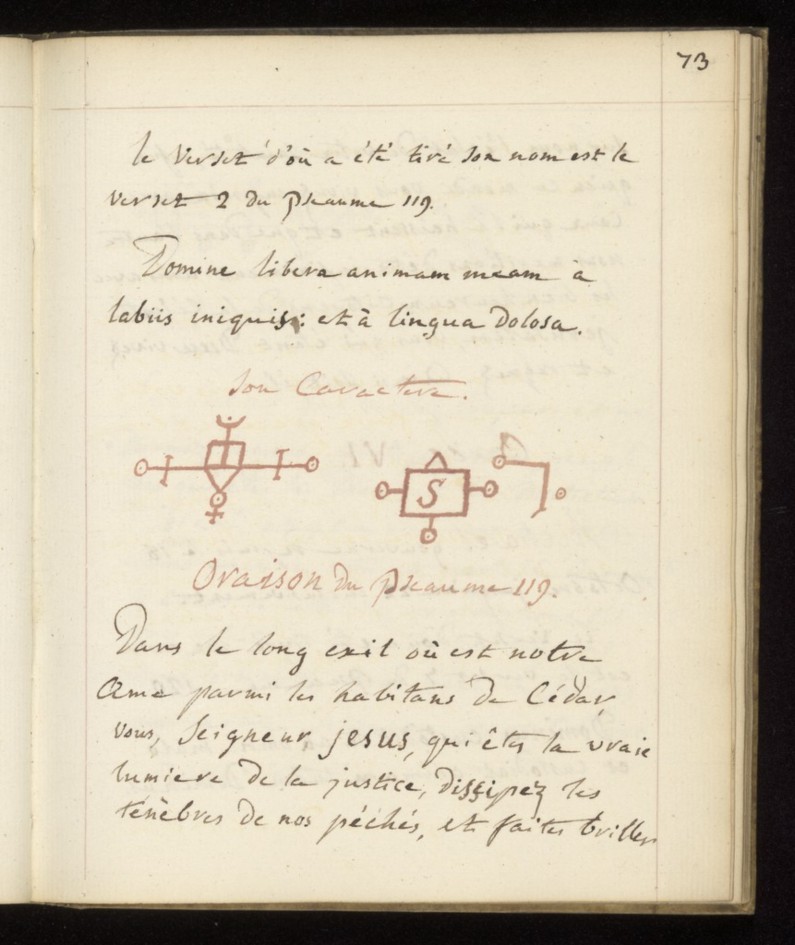 73
le Verset d'où a été tiré son nom est le
verset 2 du pseaume 119.
Domine libera animam meam à
labiis iniquis: et à lingua dolosa.
Son Caractere.
S
Oraison du pseaume 119.
Dans le long exil où est notre
ame parmi les habitans de Cédar,
vous, Seigneur jesus, qui êtes la vraie
lumiere de la justice, dissipez les
ténèbres de nos péchés, et faites briller